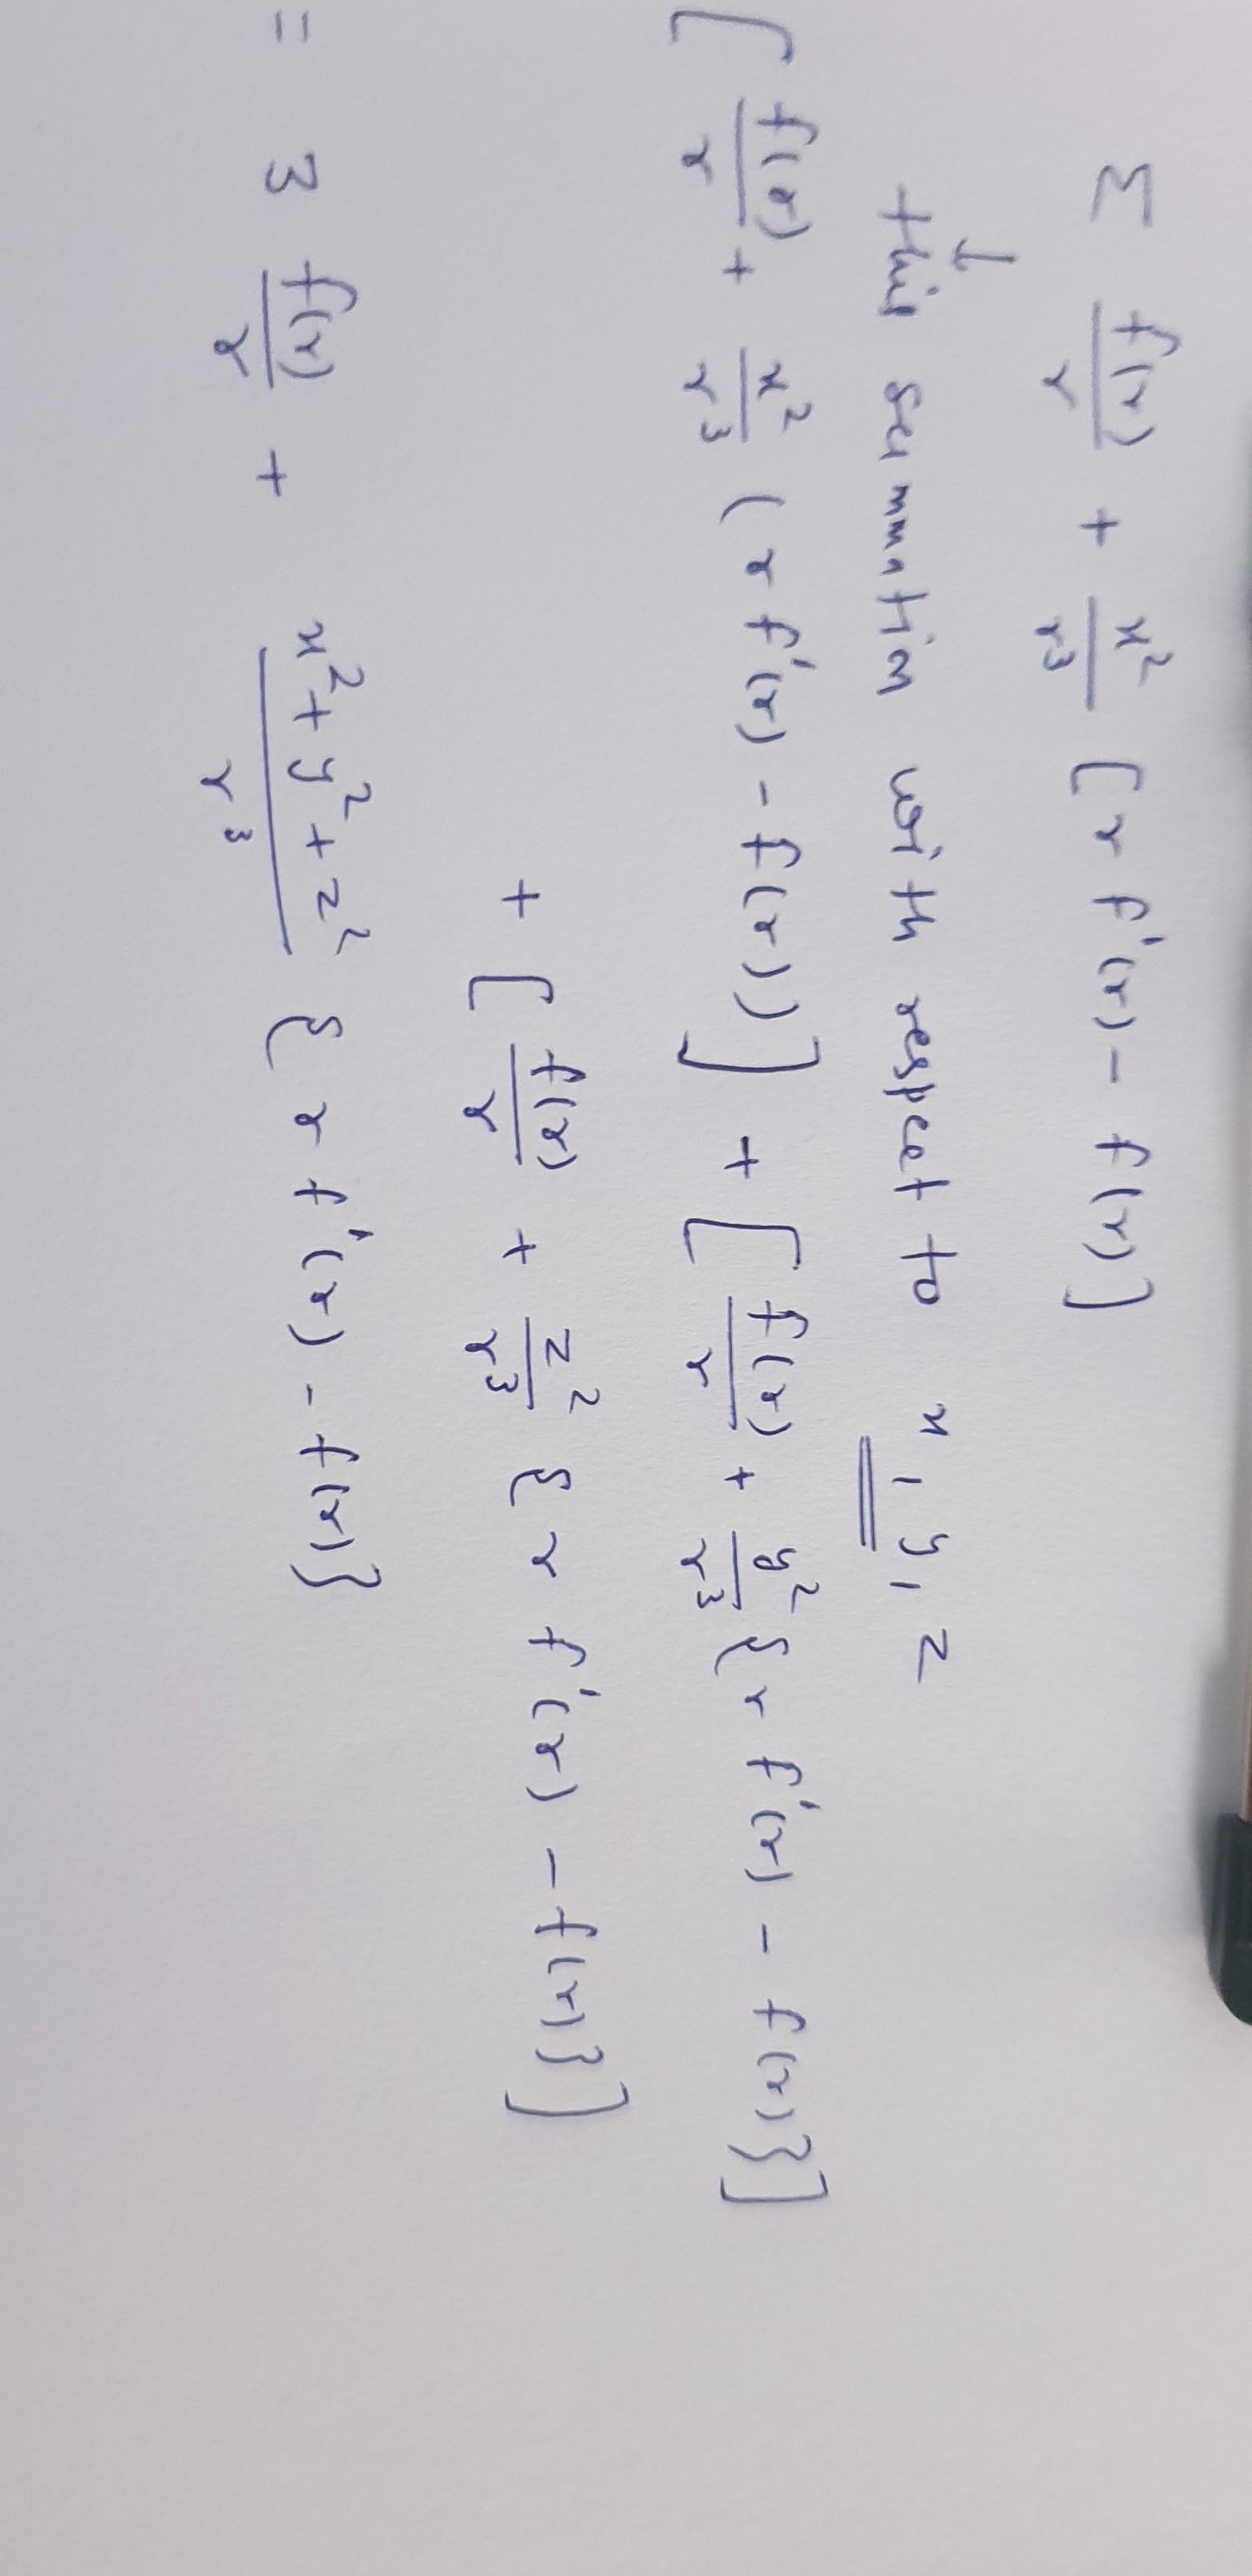 Σ f(r)/r + x²/r³ [r f'(r) - f(r)]
↓
this summation with respect to x, y, z
[f(r)/r + x²/r³ (r f'(r) - f(r))] + [f(r)/r + y²/r³ {r f'(r) - f(r)}]
+ [f(r)/r + z²/r³ {r f'(r) - f(r)}]
= 3 f(r)/r + x² + y² + z²/r³ {r f'(r) - f(r)}